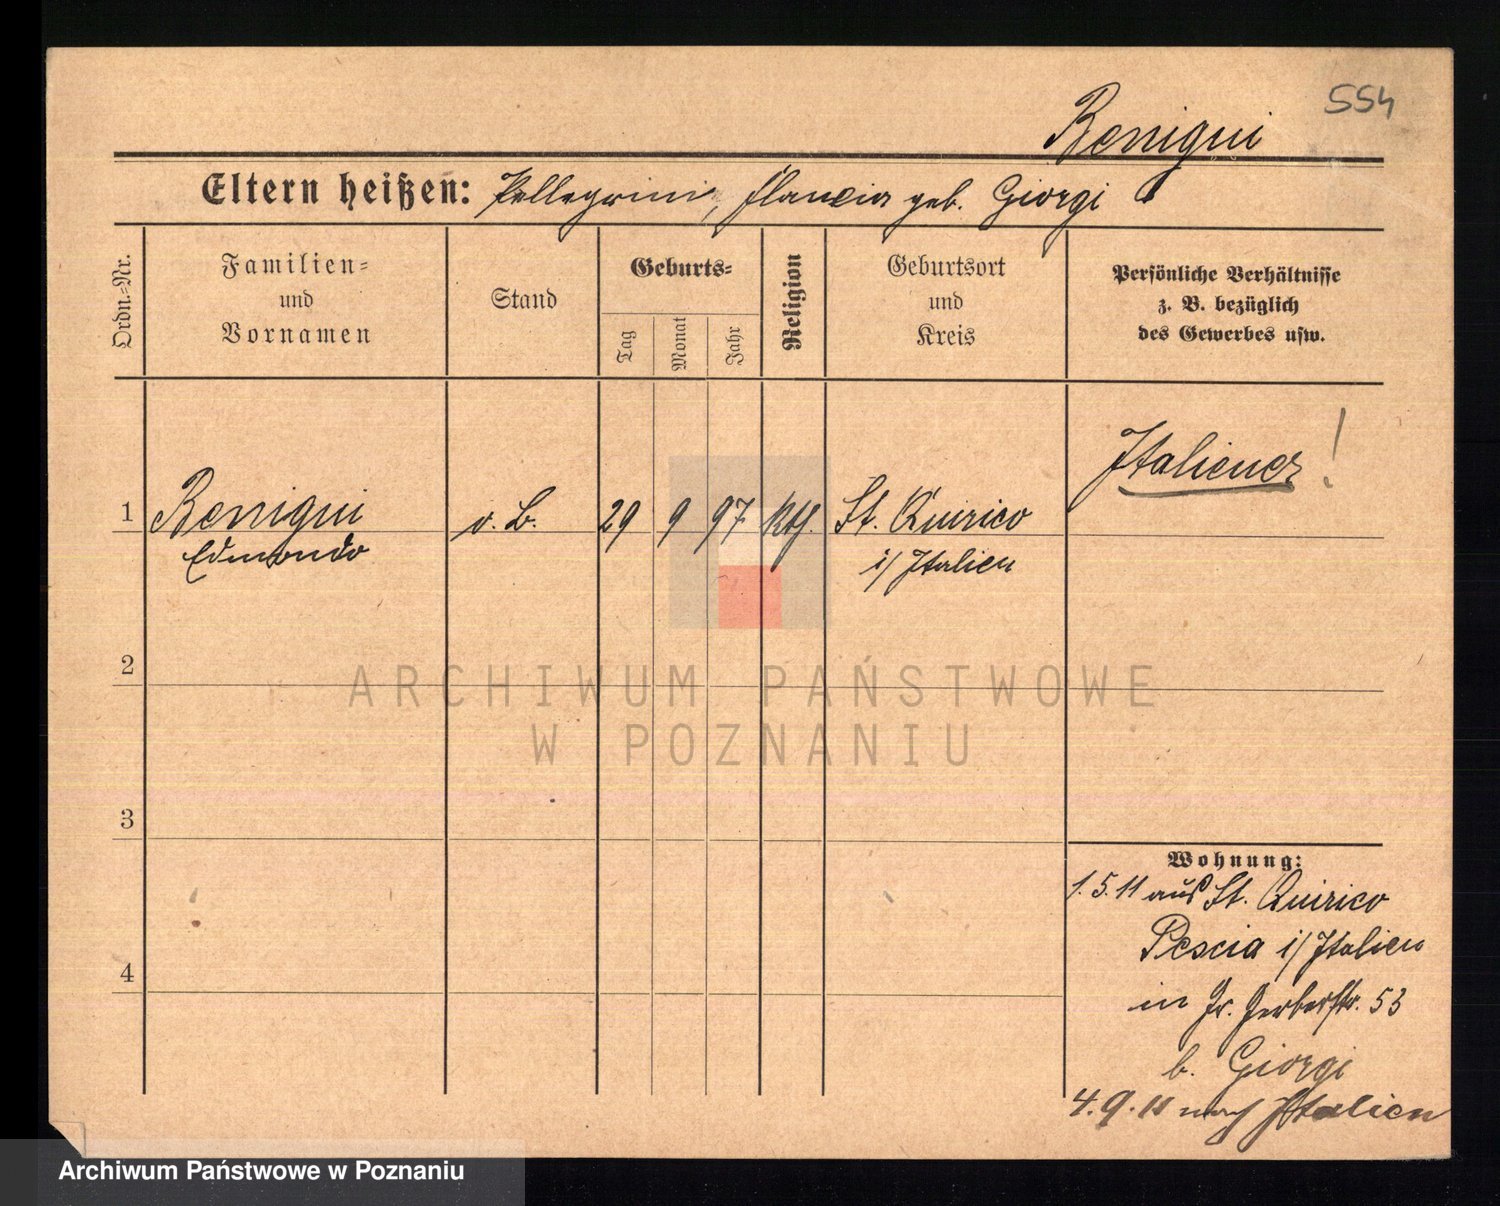 554
Benigni
Eltern heißen: Pellegrini, Flancia geb. Giorgi
Ordn.-Nr.
Familien-
und
Vornamen
Stand
Geburts-
Tag
Monat
Jahr
Religion
Geburtsort
und
Kreis
Persönliche Verhältnisse
z. B. bezüglich
des Gewerbes usw.
Italiener!
1 Benigni o. B. 29 9 97 kth. St. Quirico
Edmondo i/Italien
2
ARCHIWUM PAŃSTWOWE
W POZNANIU
3
Wohnung:
1.5.11 aus St. Quirico
Pescia i/Italien
in Gr. Gerberstr. 53
b. Giorgi
4
4.9.11 nach Italien
Archiwum Państwowe w Poznaniu